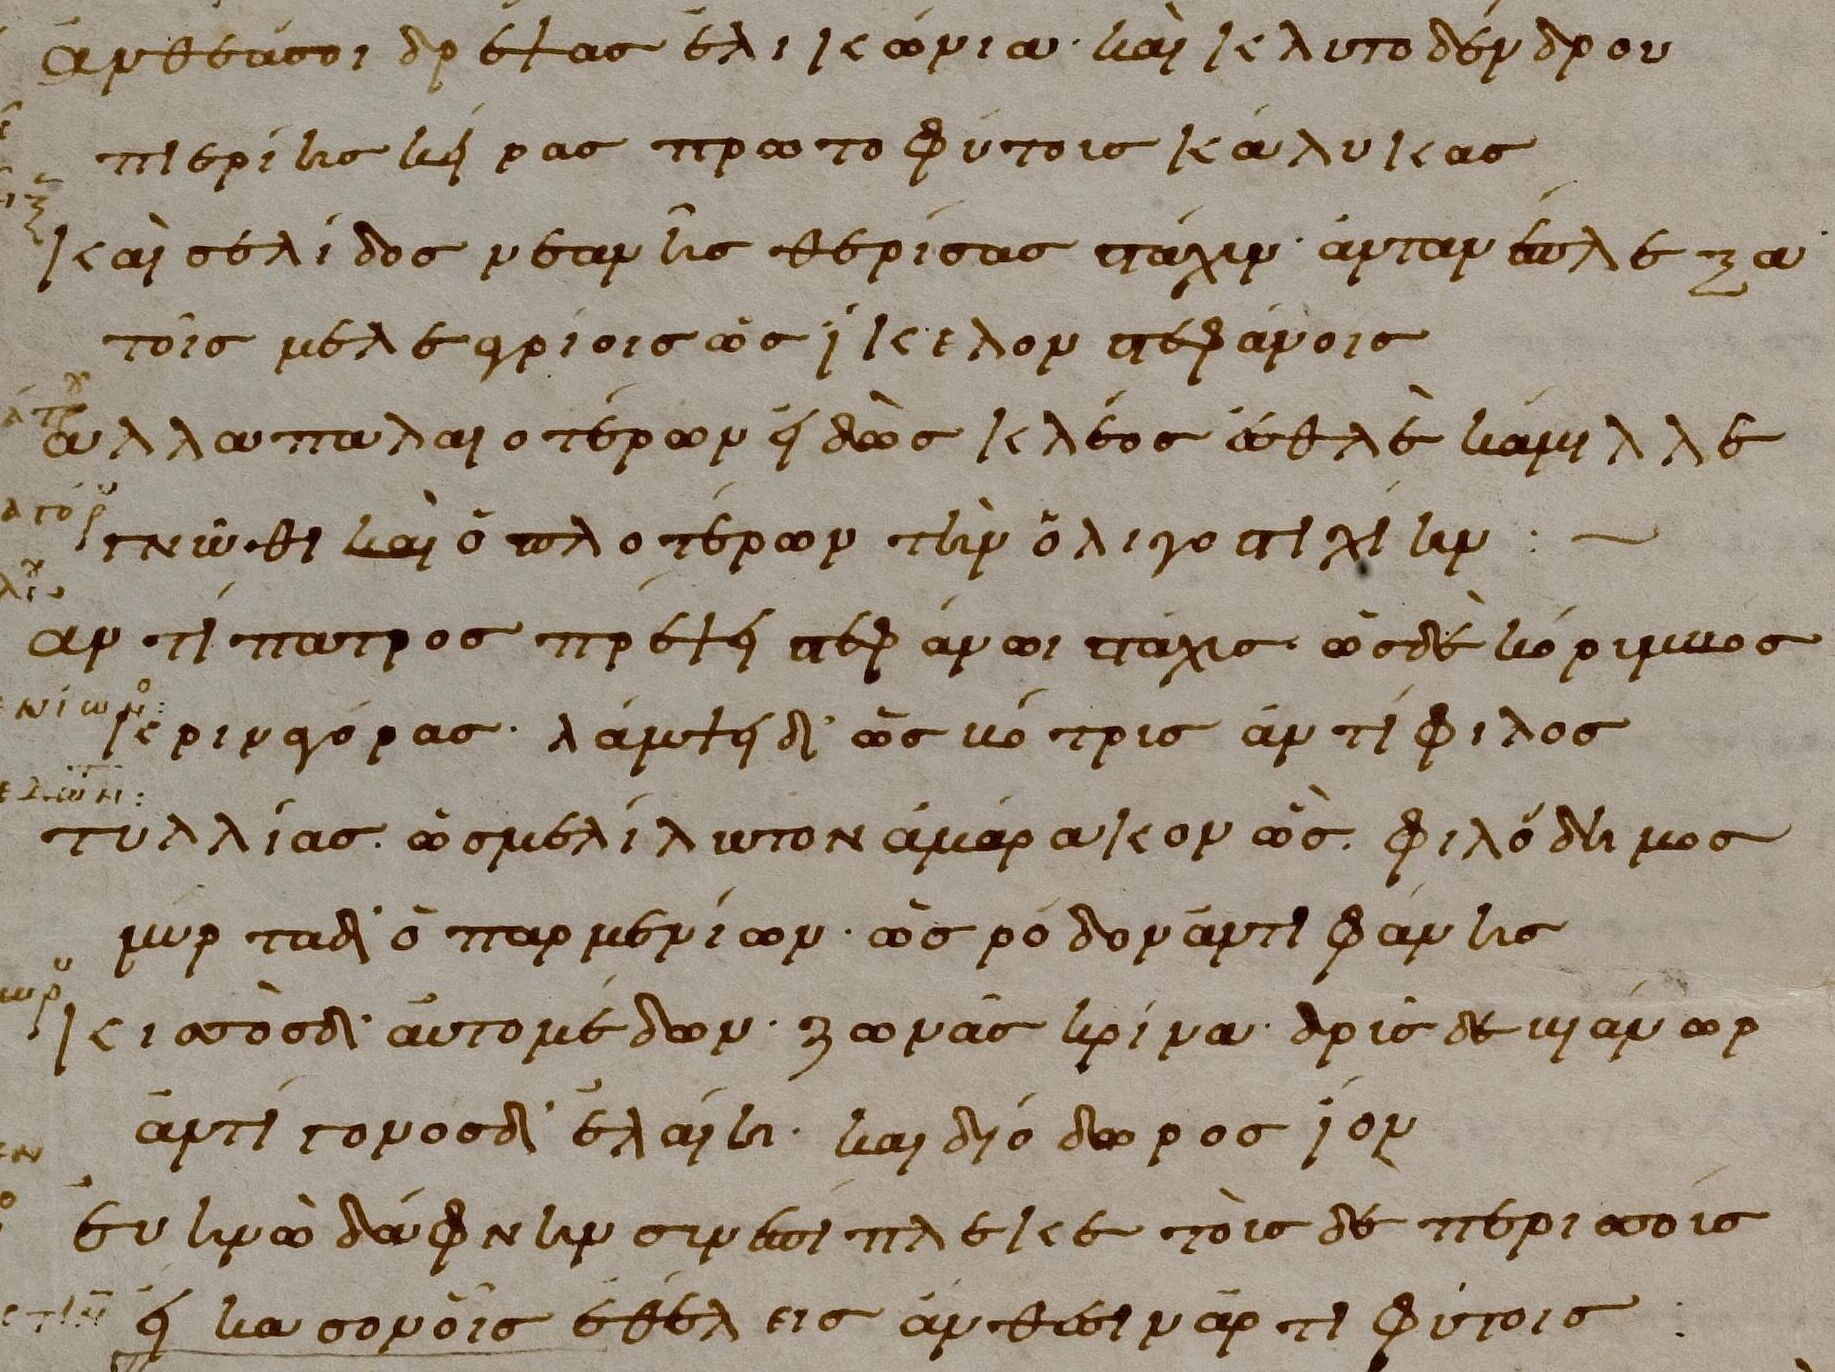 ἄνθεά σοι δρέψας ἑλικώνια· καὶ κλυτοδένδρου
πιερίης κείρας πρωτοφύτοις κάλυκας
καὶ σελίδος νεαρῆς θερίσας πάχιν· ἀνταν έπλεξα
τοῖς μελεαγρίοις ὡς ἴκελον στεφάνοις
ἀλλὰ παλαιοτέρων εἰδὼς κλέος ἐσθλὲ κάμιλλε
γνῶθι καὶ ὁπλοτέρων τὴν ὀλιγοστιχίην : ~
αντίπατρος πρέψει στεφάνωι στάχις· ὡς δὲ κόριμβος
κριναγόρας· λάμψει δ' ὡς βότρις ἀντίφιλος
τυλλίας· ὡς μελίλωτον ἀμάρακον ὣς· φιλόδημος
μύρτα δ' ὁ παρμενίων· ὡς ρόδον ἀντιφάνης
κισσὸς δ' αὐτομέδων· ζωνᾶς κρίνα· δρῖς δὲ βιάνωρ
ἀντίγονος δ' ἐλαίη· καὶ διόδωρος ἴον
εὐίνω δάφνην συνεπίπλεκε τοὺς δὲ περισσοὺς
εἰκασον οἷς ἐθέλεις ἄνθεσιν ἀρτιφύτοις :